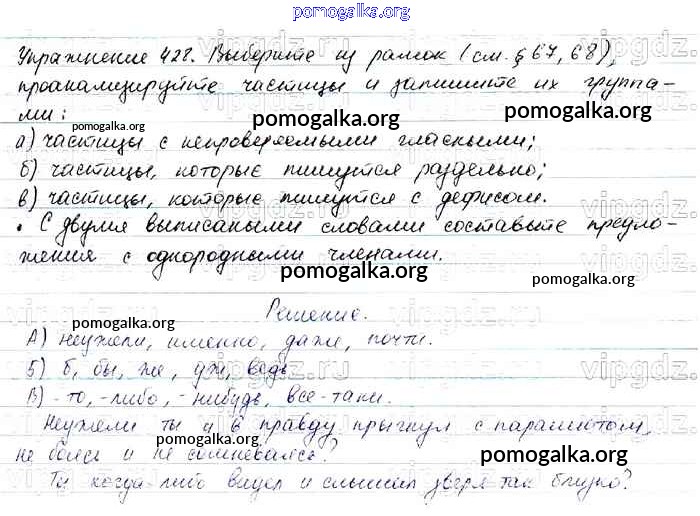 pomogalka.org
Упражнение 428. Выберите из рамок (см. § 67, 68),
проанализируйте частицы и запишите их группа-
ми:
pomogalka.org
pomogalka.org
а) частицы с непроверяемыми гласными;
б) частицы, которые пишутся раздельно;
pomogalka.org
в) частицы, которые пишутся с дефисом.
• С двумя выписаными словами составьте предло-
жения с однородными членами.
pomogalka.org
pomogalka.org
Решение.
pomogalka.org
А) неужели, именно, даже, почти.
pomogalka.org
Б) б, бы, же, уж, ведь
pomogalka.org
В) -то, -либо, -нибудь, все-таки.
Неужели ты и в правду прыгнул с парашютом,
pomogalka.org
не боясь и не сомневаясь?
pomogalka.org
Ты когда-либо видел и слышал зверя так близко?